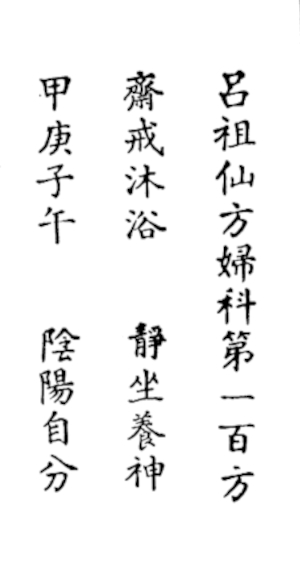 呂祖仙方婦科第一百方
齋戒沐浴 靜坐養神
甲庚子午 陰陽自分